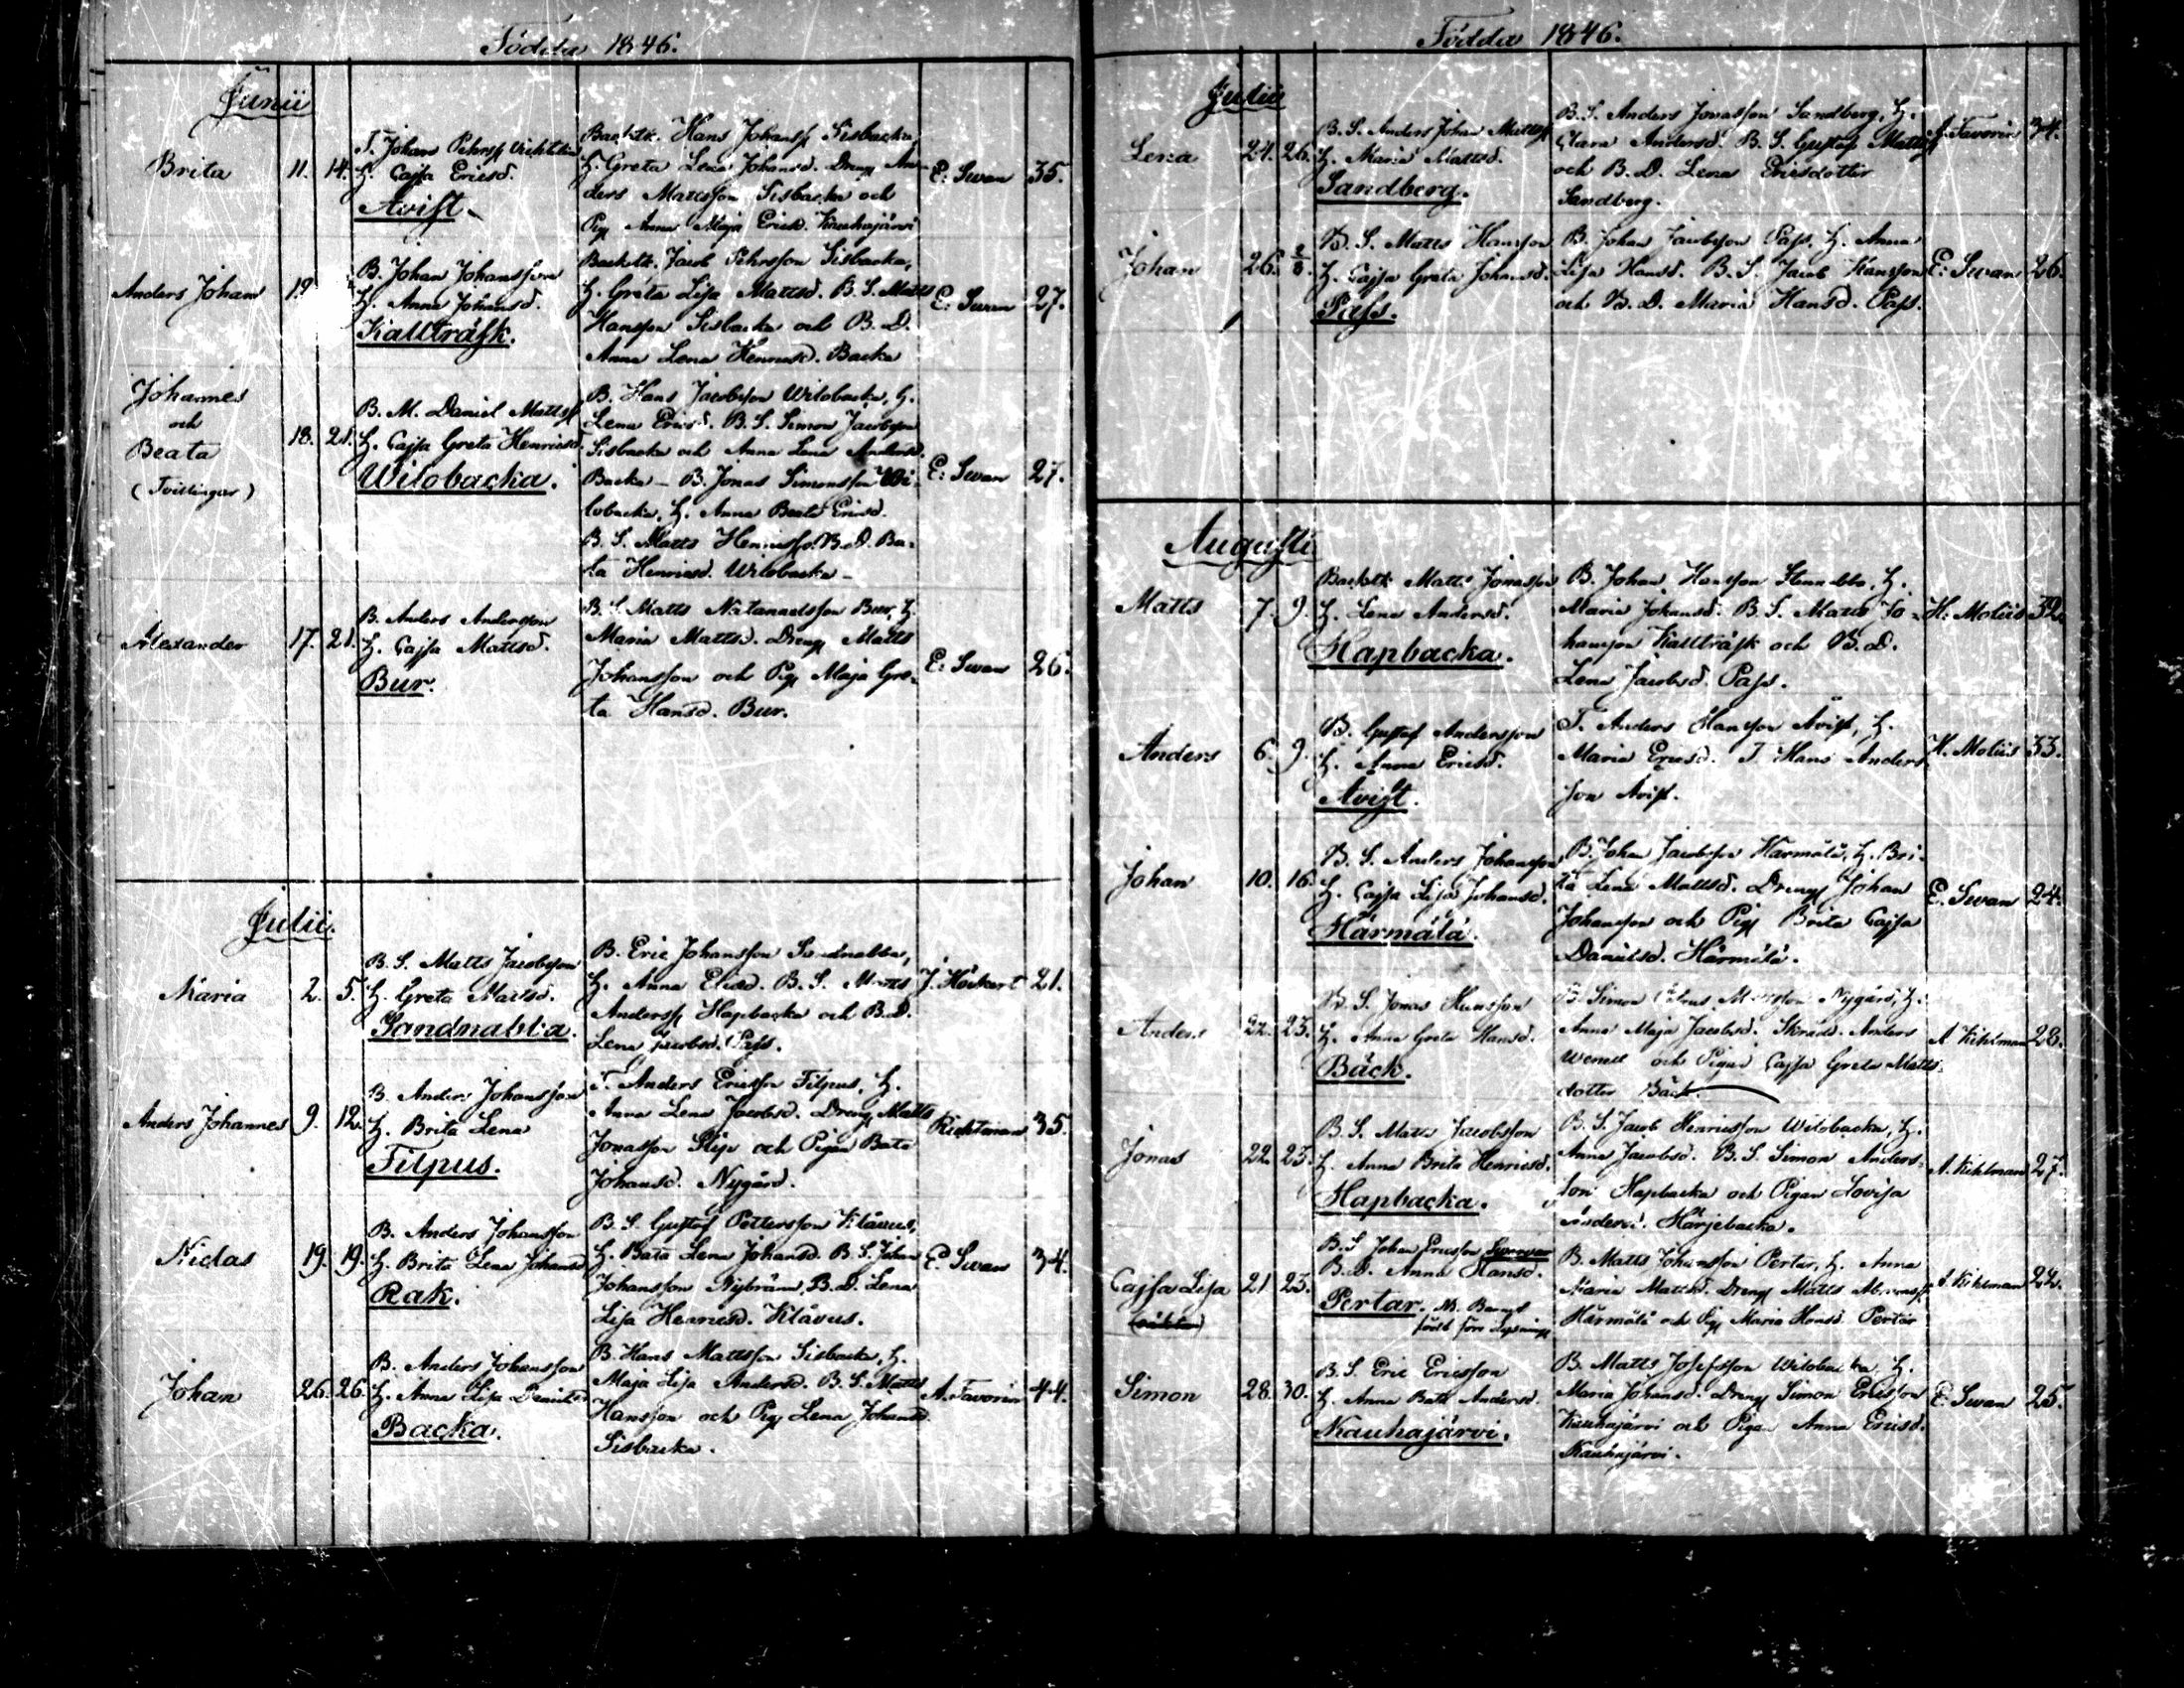 Födda 1846.
Junii
Brita 11. 14.
T. Johan Pehrsf
H. Cajsa Ericsd.
Avist
Backstk. Hans Johansf Sisbacka,
H. Greta Lena Johansd. Dreng An-
ders Mattsson Sisbacka och
Pig Anna Maja Ericsd. Kauhajärvi
E: Swan 35.
Anders Johan 19
B. Johan Johansson
H. Anna Johansd.
Kallträsk.
Backstk. Jacob Pehrsson Sisbacka,
H. Greta Lisa Mattsd. B. S. Matts
Hansson Sisbacka och B. D.
Anna Lena Henricsd. Backa
E: Swan 27.
Johannes
och
Beata
(Tvillingar)
18. 21.
B. M. Daniel Mattsf
H. Cajsa Greta Henricsd.
Wilobacka.
B. Hans Jacobsson Wilobacka, H.
Lena Ericsd. B. S. Simon Jacobsson
Sisbacka och Anna Lena Andersd.
Backa – B. Jonas Simonsson Wi-
lobacka, H. Anna Beata Ericsd.
B. S. Matts Henricsf. B. D. Ba-
ta Henricsd. Wilobacka –
E: Swan 27.
Alexander 17. 21.
B. Anders Andersson
H. Cajsa Mattsd.
Bur.
B. S. Matts Natanaelsson Bur, H.
Maria Mattsd. Dreng Matts
Johansson och Pig Maja Gre-
ta Hansd. Bur.
E: Swan 26.
Julii.
Maria 2. 5.
B. S. Matts Jacobsson
H. Greta Mattsd.
Sandnabba.
B. Eric Johansson Sandnabba,
H. Anna Eliesd. B. S. Matts
Andersf Hapbacka och B. D.
Lena Jacobsd. Pass.
J. Höckert 21.
Anders Johannes 9. 12.
B. Anders Johansson
H. Brita Lena
Filpus.
T. Anders Ericsson Filpus, H.
Anna Lena Jacobsd. Dreng Matts
Jonasson Slip och Pigan Bata
Johansd. Nygård.
35.
Niclas 19. 19.
B. Anders Johansson
H. Brita Lena Johansd
Rak.
B. S. Gustaf Pettersson Klåvus,
H. Bata Lena Johansd. B. S. Johan
Johansson Nybränn, B. D. Lena
Lisa Henricsd. Klåvus.
E. Swan 34.
Johan 26. 26.
B. Anders Johansson
H. Anna Lisa Danielsd
Backa.
B. Hans Mattsson Sisbacka, H.
Maja Lisa Andersd. B. S. Matts
Hansson och Pig Lena Johansd.
Sisbacka.
A. Favorin 44.
Födda 1846.
Julii
Lena 24. 26.
B. S. Anders Johan Mattsf
H. Maria Mattsd.
Sandberg.
B. S. Anders Jonasson Sandberg, H.
Clara Andersd. B. S. Gustaf Mattsf
och B. D. Lena Ericsdotter
Sandberg.
A. Favorin 34.
Johan 26. 2/8.
B. S. Matts Hansson
H. Cajsa Greta Johansd.
Pass.
B. Johan Jacobsson Pass, H. Anna
Lisa Hansd. B. S. Jacob Hansson
och B. D. Maria Hansd. Pass.
E: Swan 26.
Augusti
Matts 7. 9.
Backstk Matts Jonasson
H. Lena Andersd.
Hapbacka.
B. Johan Hansson H.
Maria Johansd. B. S. Matts Jo-
hansson Kallträsk och B. D.
Lena Jacobsd. Pass.
H. Moliis 32.
Anders 6. 9.
B. Gustaf Andersson
H. Anna Ericsd.
Avist.
T. Anders Hansson Avist, H.
Maria Ericsd. T. Hans Anders-
son Avist.
H. Moliis 33.
Johan 10. 16.
B. S. Anders Johansson
H. Cajsa Lisa Johansd.
Härmälä.
B. Johan Jacobsson Härmälä, H. Bri-
ta Lena Mattsd. Dreng Johan
Johansson och Pig Brita Cajsa
Danielsd. Härmälä.
E. Swan 24.
Anders 22. 23.
B. S. Jonas Hansson
H. Anna Greta Hansd.
Bäck.
B. Simon Nygård, H.
Anna Maja Jacobsd. Skrädd. Anders
och Pigan Cajsa Greta Matts-
dotter Bäck.
A Kihlman 28.
Jonas 22. 23.
B. S. Matts Jacobsson
H. Anna Brita Henricsd.
Hapbacka.
B. S. Jacob Henricsson Wilobacka, H.
Anna Jacobsd. B. S. Simon Anders-
son Hapbacka och Pigan Lovisa
Andersd. Härjebacka.
A. Kihlman 27.
Cajsa Lisa 21 23.
B. S Johan Ericsson
B. D. Anna Hansd.
Pertar. NB. Barnet
född före Lysning
B. Matts Johansson Pertar, H. Anna
Maria Mattsd. Dreng Matts
Härmälä och Pig Maria Hansd. Pertar
A. Kihlman 22.
Simon 28. 30.
B. S. Eric Ericsson
H. Anna Bata Andersd.
Kauhajärvi.
B. Matts Josefsson Wilobacka, H.
Maria Johansd. Dreng Simon Ericsson
Kauhajärvi och Pigan Anna Ericsd.
Kauhajärvi.
E: Swan 25.